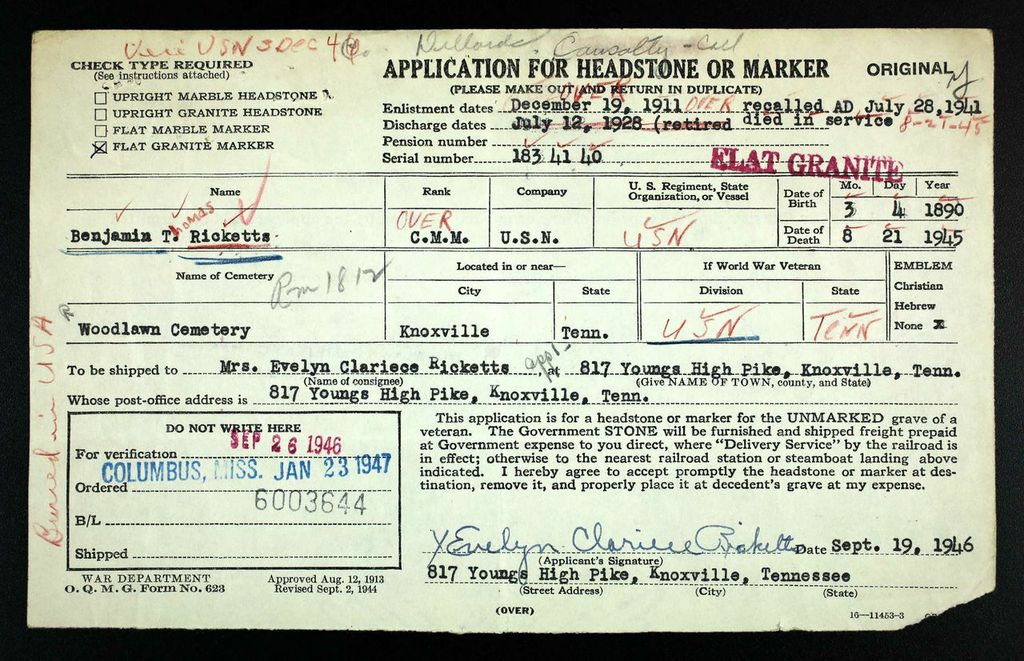 Veri USN 3 DEC 44 Dillards. Causalty - Call
CHECK TYPE REQUIRED
(See instructions attached)
UPRIGHT MARBLE HEADSTONE
UPRIGHT GRANITE HEADSTONE
FLAT MARBLE MARKER
☒ FLAT GRANITE MARKER
APPLICATION FOR HEADSTONE OR MARKER
ORIGINAL
(PLEASE MAKE OUT AND RETURN IN DUPLICATE)
OVER
Enlistment dates December 19, 1911 OVER recalled AD July 28, 1941
Discharge dates July 12, 1928 (retired died in service 8-21-45
Pension number
Serial number 183 41 40
FLAT GRANITE
Name Rank Company U. S. Regiment, State Organization, or Vessel Date of Birth Mo. Day Year
3 4 1890
Thomas
Benjamin T. Ricketts OVER C.M.M. U.S.N. USN Date of Death 8 21 1945
Name of Cemetery Located in or near— If World War Veteran EMBLEM
City State Division State Christian
Hebrew
None X
Rm 1812
Woodlawn Cemetery Knoxville Tenn. USN TENN
Buried in USA
To be shipped to Mrs. Evelyn Clariece Ricketts appl- at 817 Youngs High Pike, Knoxville, Tenn.
(Name of consignee) (Give NAME OF TOWN, county, and State)
Whose post-office address is 817 Youngs High Pike, Knoxville, Tenn.
DO NOT WRITE HERE
SEP 26 1946
For verification
COLUMBUS, MISS. JAN 23 1947
Ordered
6003644
B/L
Shipped
This application is for a headstone or marker for the UNMARKED grave of a
veteran. The Government STONE will be furnished and shipped freight prepaid
at Government expense to you direct, where "Delivery Service" by the railroad is
in effect; otherwise to the nearest railroad station or steamboat landing above
indicated. I hereby agree to accept promptly the headstone or marker at des-
tination, remove it, and properly place it at decedent's grave at my expense.
X Evelyn Clariece Ricketts Date Sept. 19, 1946
(Applicant's Signature)
817 Youngs High Pike, Knoxville, Tennessee
(Street Address) (City) (State)
WAR DEPARTMENT
O. Q. M. G. Form No. 623
Approved Aug. 12, 1913
Revised Sept. 2, 1944
(OVER)
16—11453-3